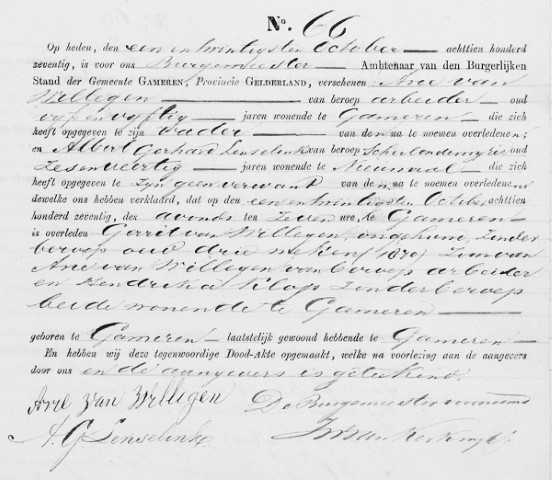 No. 66
Op heden, den een en twintigsten October achttien honderd
zeventig, is voor ons Burgemeester Ambtenaar van den Burgerlijken
Stand der Gemeente GAMEREN, Provincie GELDERLAND, verschenen Arie van
Willegen van beroep arbeider oud
vijf en vijftig jaren wonende te Gameren die zich
heeft opgegeven te zijn vader van den na te noemen overledenen;
en Albert Gerhard Lenselink van beroep oud
zes en veertig jaren wonende te Nieuwaal die zich
heeft opgegeven te zijn geen verwand van den na te noemen overledenen
dewelke ons hebben verklaard, dat op den een en twintigsten October achttien
honderd zeventig, des avonds ten zeven ure, te Gameren
is overleden Gerrit van Willegen, ongehuwd, zonder
beroep oud drie weken (1870) Zoon van
Arie van Willegen van beroep arbeider
en Hendrika Klop zonder beroep
beide wonende te Gameren
geboren te Gameren laatstelijk gewoond hebbende te Gameren
En hebben wij deze tegenwoordige Dood-Akte opgemaakt, welke na voorlezing aan de aangevers
door ons en de aangevers is geteekend.
Arie van Willigen De Burgemeester voornoemd
A. G. Lenselink